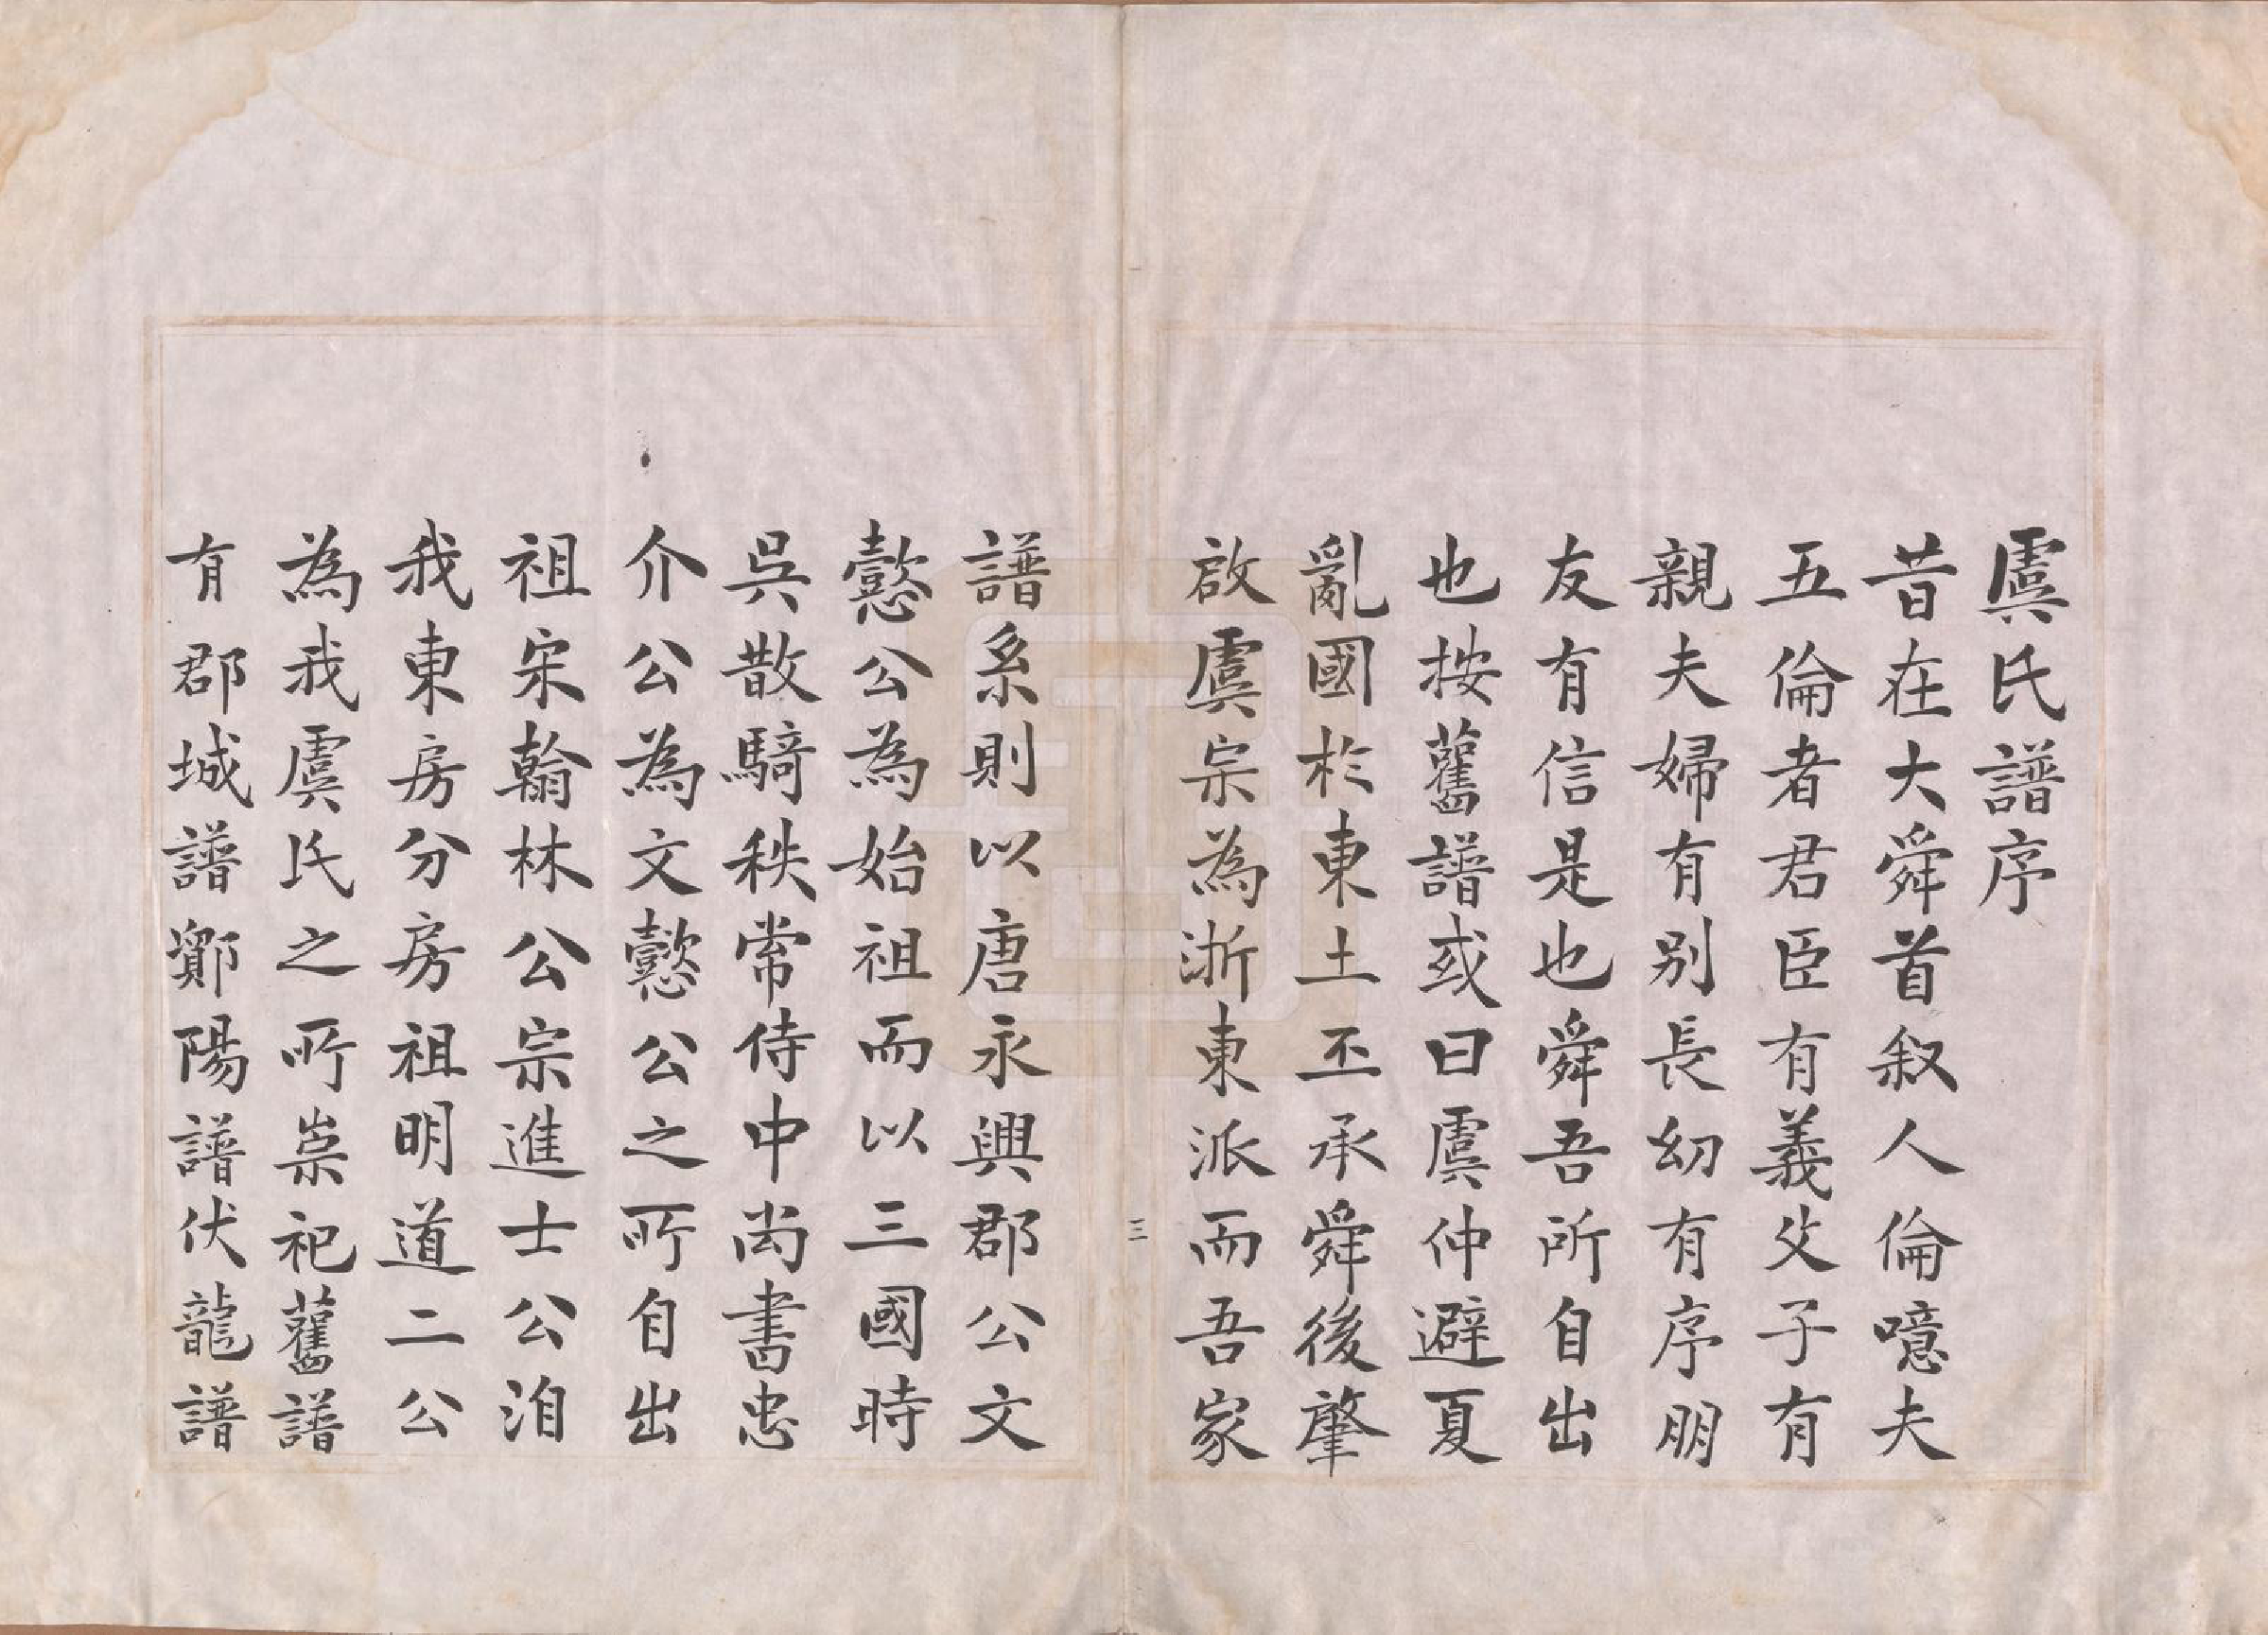 虞氏譜序
昔在大舜首叙人倫噫夫
五倫者君臣有義父子有
親夫婦有别長幼有序朋
友有信是也舜吾所自出
也按舊譜或曰虞仲避夏
亂國於東土丕承舜後肇
啟虞宗為浙東派而吾家
三
譜系則以唐永興郡公文
懿公為始祖而以三國時
吳散騎秩常侍中尚書忠
介公為文懿公之所自出
祖宋翰林公宗進士公洎
我東房分房祖明道二公
為我虞氏之所崇祀舊譜
有郡城譜鄞陽譜伏龍譜